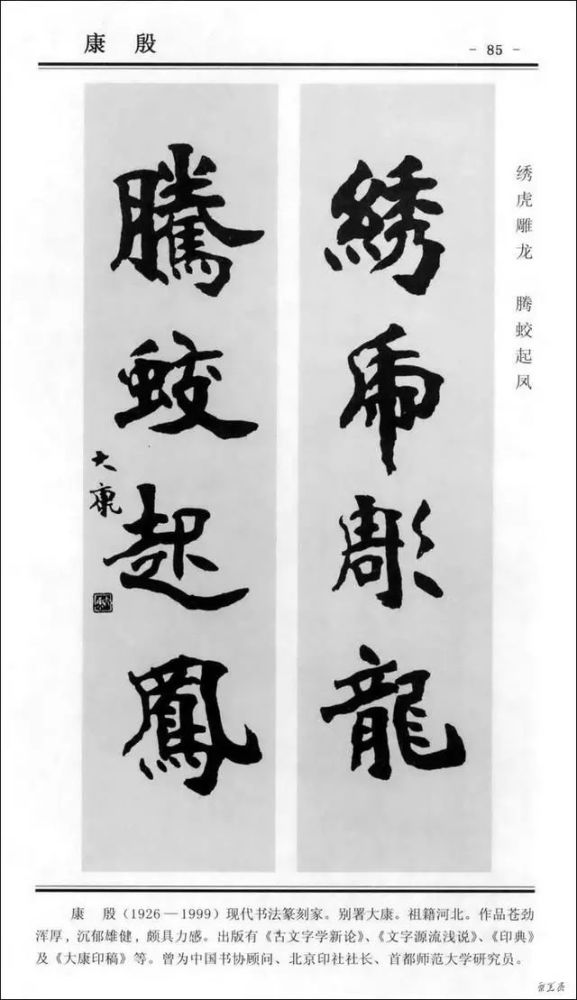 康 殷
- 85 -
绣虎雕龙 腾蛟起凤
綉虎彫龍
騰蛟起鳳
大康
康 殷（1926—1999）现代书法篆刻家。别署大康。祖籍河北。作品苍劲
浑厚，沉郁雄健，颇具力感。出版有《古文字学新论》、《文字源流浅说》、《印典》
及《大康印稿》等。曾为中国书协顾问、北京印社社长、首都师范大学研究员。